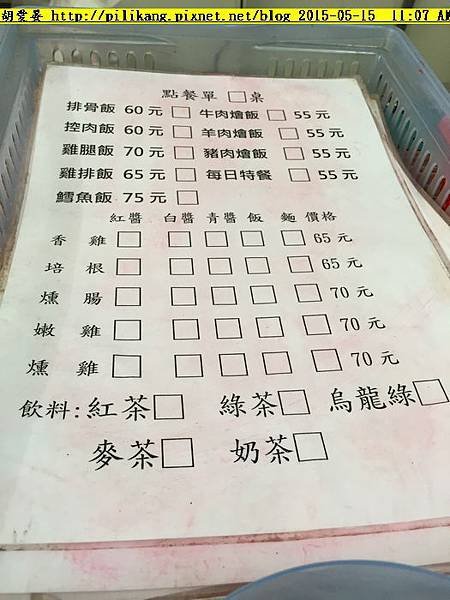 胡雯晏 http://pilikang.pixnet.net/blog 2015-05-15 11:07 AM
點餐單 □桌
排骨飯 60 元 □ 牛肉燴飯 □ 55 元
控肉飯 60 元 □ 羊肉燴飯 □ 55 元
雞腿飯 70 元 □ 豬肉燴飯 □ 55 元
雞排飯 65 元 □ 每日特餐 □ 55 元
鱈魚飯 75 元 □
紅醬 白醬 青醬 飯 麵 價格
香 雞 □ □ □ □ □ 65 元
培 根 □ □ □ □ □ 65 元
燻 腸 □ □ □ □ □ 70 元
嫩 雞 □ □ □ □ □ 70 元
燻 雞 □ □ □ □ □ 70 元
飲料: 紅茶□ 綠茶□ 烏龍綠□
麥茶□ 奶茶□